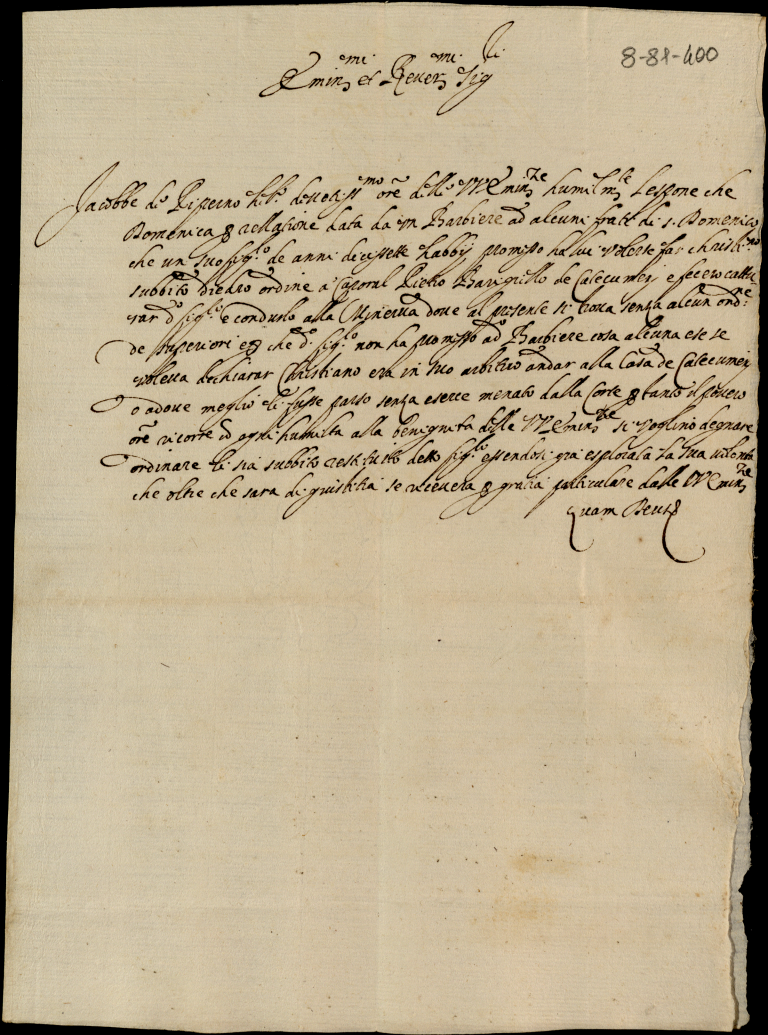 8-81-400
Emin.mi et Rever.mi Sig.ri
Jacobbe de Piperno heb.o devotiss.mo ore delle VV Emin.ze humilm.te l'espone che
Domenica p rellatione data da un Barbiere ad alcuni frati di s. Domenico
che un suo figl.o de anni diecisette habbij promisso ha lui volerse far Christi.no
subbito diedro ordine a Caporal Pietro Barigello de Catecumeni e fecero catte
rar d.o figl.o e condurlo alla Minerva dove al presente si trova senza alcun ond.e
de superiori e p che d.o figl.o non ha promisso ad Barbiere cosa alcuna e se se
voleva dechiarar Christiano era in suo arbitrio andar alla Casa de Catecumeni
o adove meglio li fusse parso senza essere menato dalla Corte p tanto il povero
ore ricorre cd ogni humilta alla benignita delle VV Emin.ze si voglino degnare
ordinare li sia subbito restituito detto figl.o essendosi gia esplorata la sua volonta
che oltre che sara di giustitia se ricevera p gracia particulare dalle VV Emin.ze
quam Deus